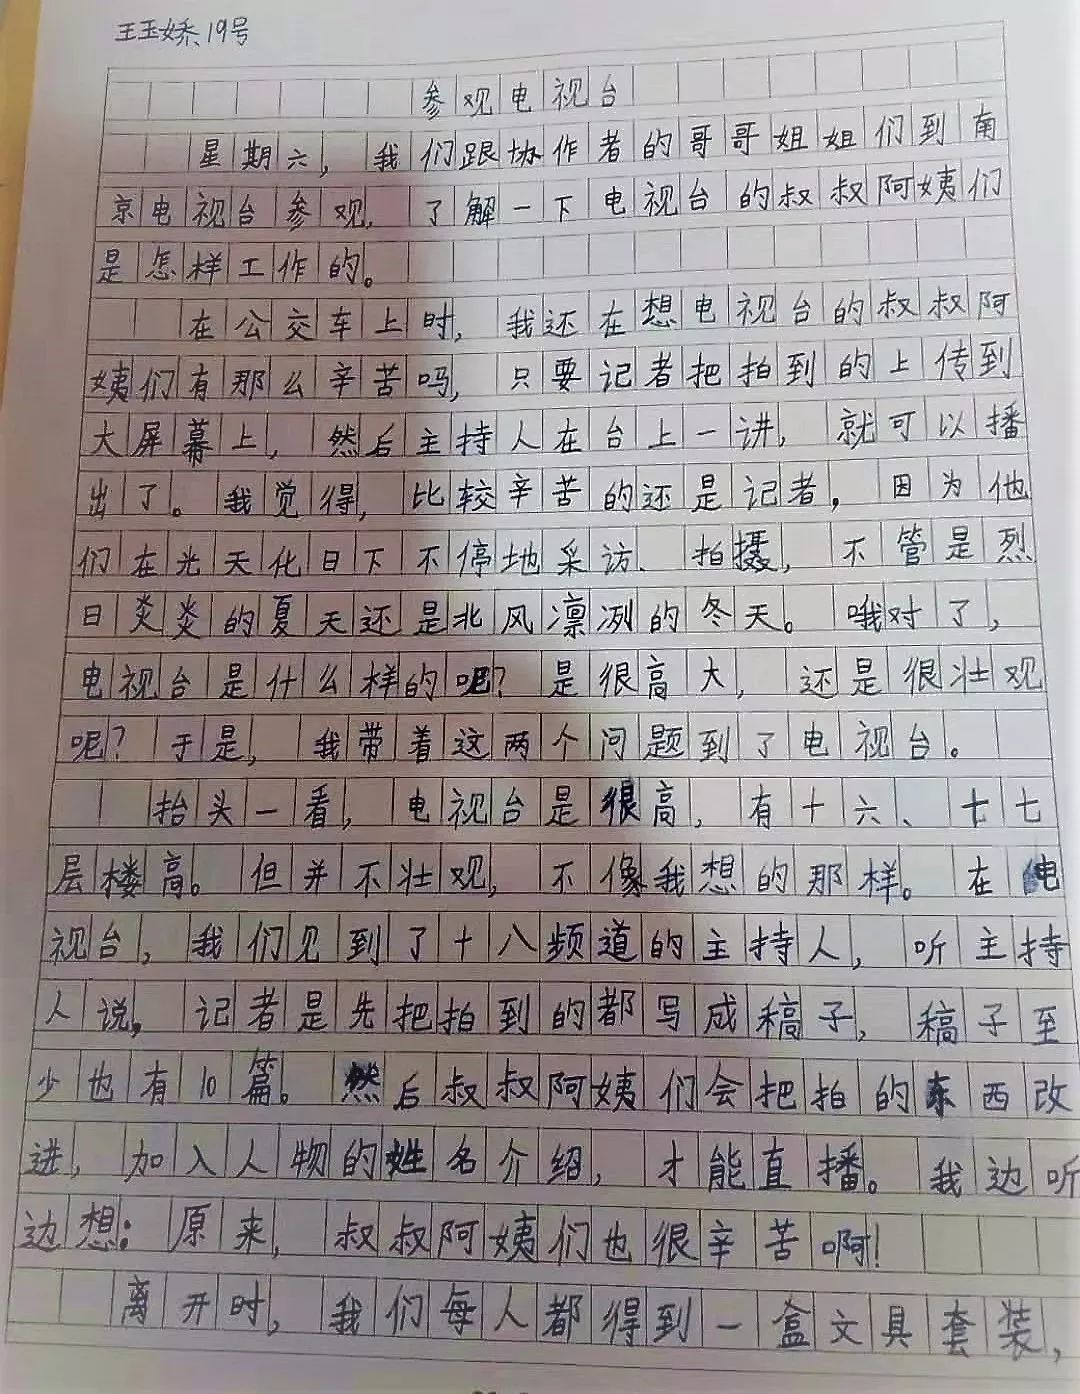 王玉娇19号
参观电视台
星期六，我们跟协作者的哥哥姐姐们到南
京电视台参观，了解一下电视台的叔叔阿姨们
是怎样工作的。
在公交车上时，我还在想电视台的叔叔阿
姨们有那么辛苦吗，只要记者把拍到的上传到
大屏幕上，然后主持人在台上一讲，就可以播
出了。我觉得，比较辛苦的还是记者，因为他
们在光天化日下不停地采访、拍摄，不管是烈
日炎炎的夏天还是北风凛冽的冬天。哦对了，
电视台是什么样的呢？是很高大，还是很壮观
呢？于是，我带着这两个问题到了电视台。
抬头一看，电视台是很高，有十六、七七
层楼高。但并不壮观，不像我想的那样。在电
视台，我们见到了十八频道的主持人，听主持
人说，记者是先把拍到的都写成稿子，稿子至
少也有10篇。然后叔叔阿姨们会把拍的东西改
进，加入人物的姓名介绍，才能直播。我边听
边想：原来，叔叔阿姨们也很辛苦啊！
离开时，我们每人都得到一盒文具套装，